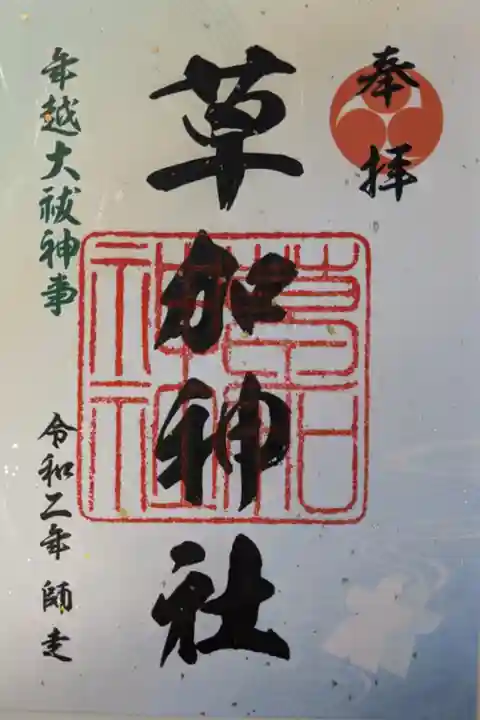 奉拝
草加神社
年越大祓神事
令和二年 師走